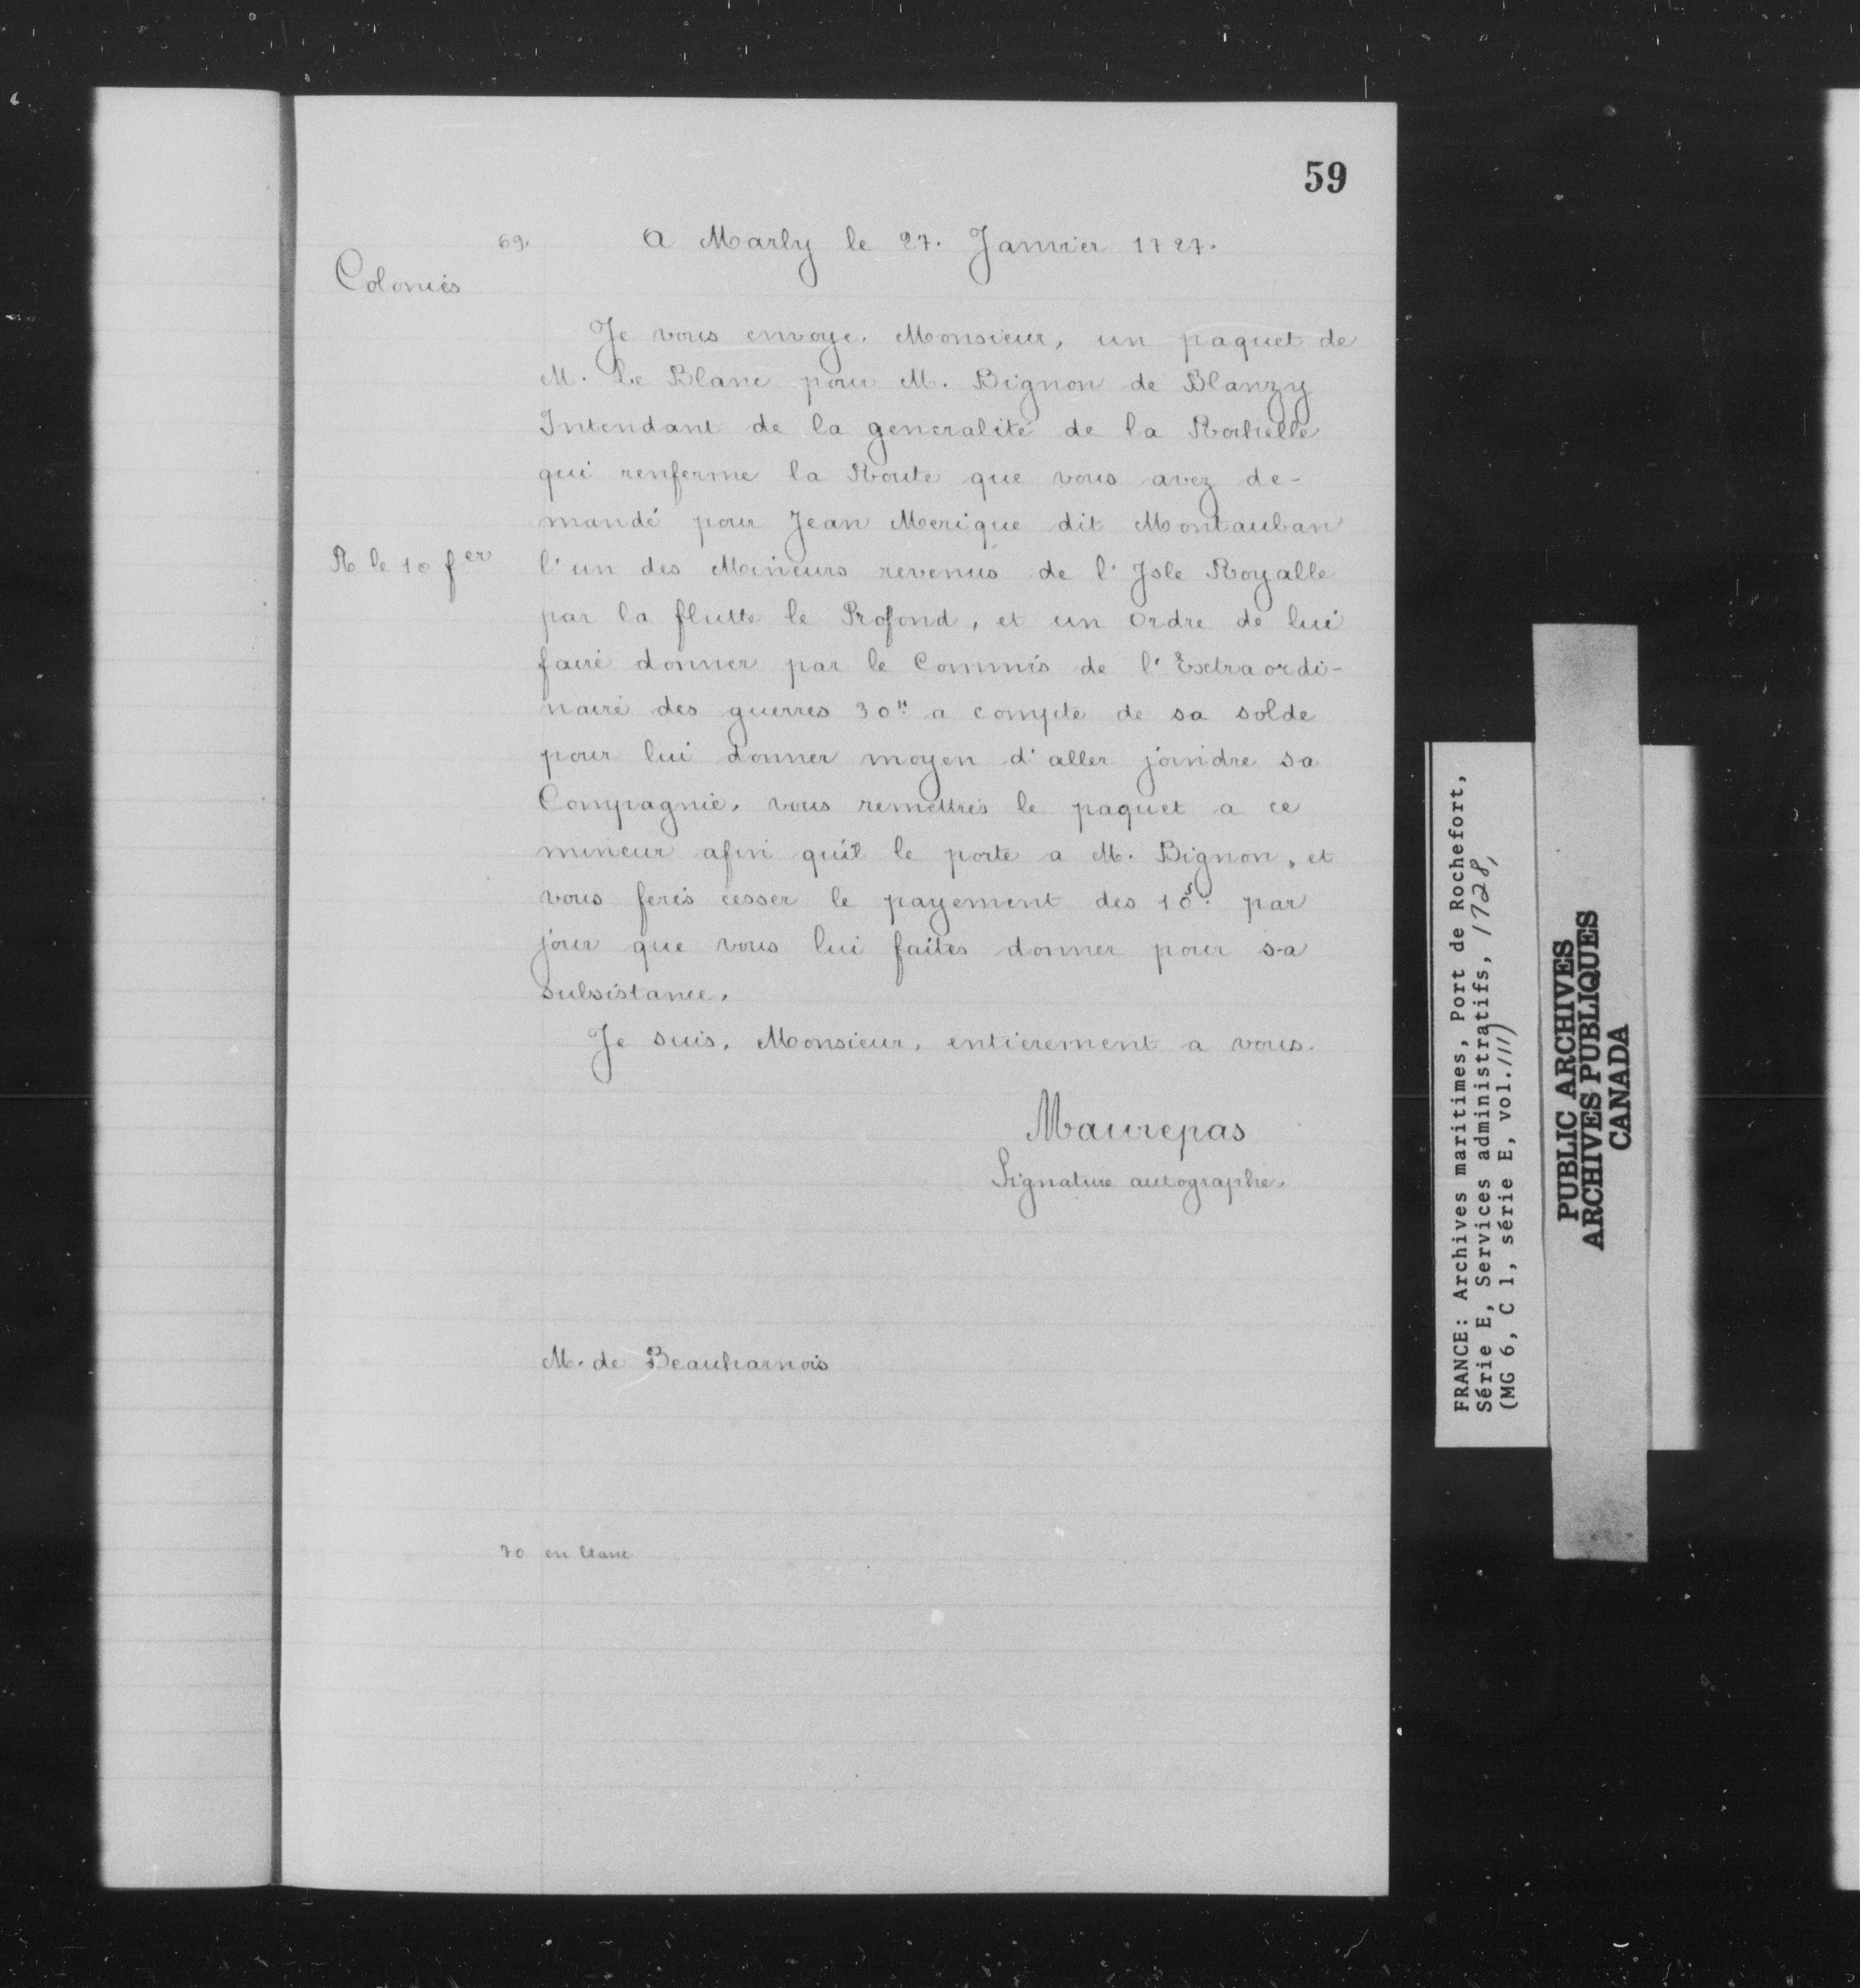 59
69.
A Marly le 27. Janvier 1727.
Colonies
Je vous envoye, Monsieur, un paquet de
M. Le Blanc pour M. Bignon de Blanzy
Intendant de la generalité de la Rochelle
qui renferme la Route que vous avez de-
mandé pour Jean Merique dit Montauban
R le 10 fer
l'un des Mineurs revenus de l'Isle Royalle
par la flutte le Profond, et un Ordre de lui
faire donner par le Commis de l'Extraordi-
naire des guerres 30tt a compte de sa solde
pour lui donner moyen d'aller joindre sa
Compagnie, vous remettrés le paquet a ce
mineur afin quil le porte a M. Bignon, et
vous ferés cesser le payement des 10s. par
jour que vous lui faites donner pour sa
subsistance.
Je suis, Monsieur, entierement a vous.
Maurepas
Signature autographe.
M. de Beauharnois
70 en blanc
FRANCE: Archives maritimes, Port de Rochefort,
Série E, Services administratifs, 1728,
(MG 6, C 1, série E, vol.III)
PUBLIC ARCHIVES
ARCHIVES PUBLIQUES
CANADA